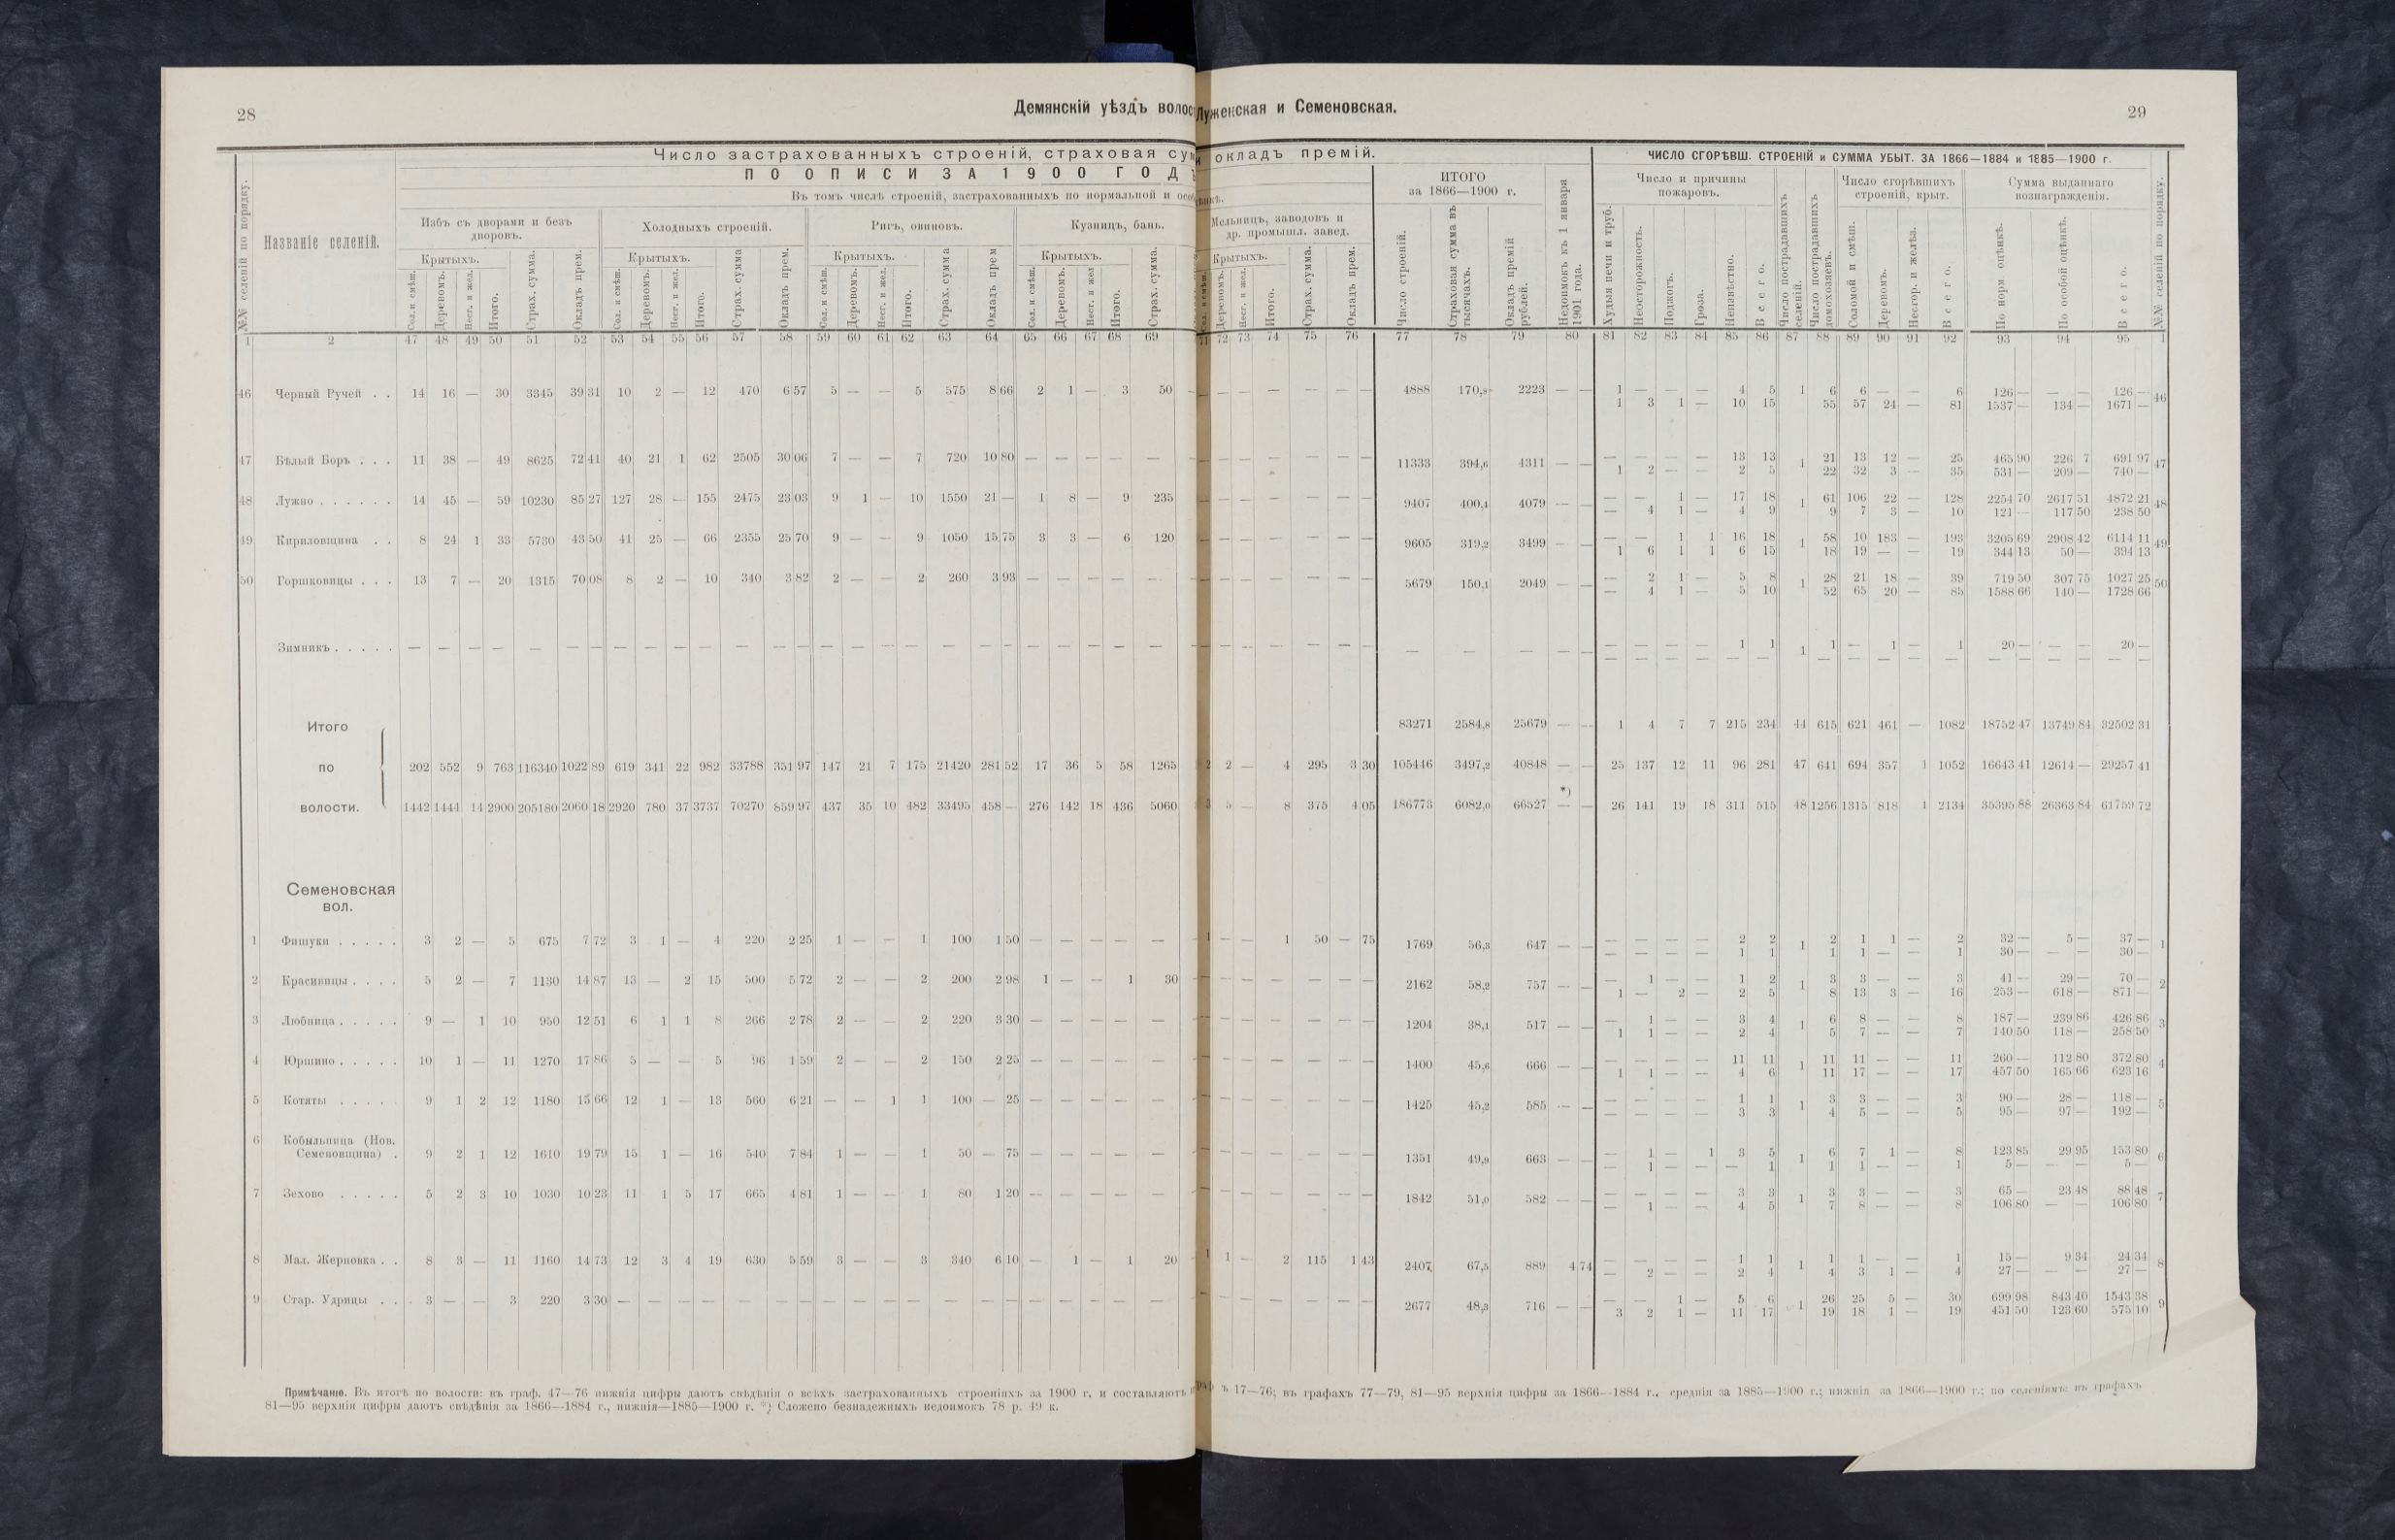 28
Демянскій уѣздъ волос
Луженская и Семеновская.
29
Число застрахованныхъ строеній, страховая сум
окладъ премій.
ПО ОПИСИ ЗА 1900 ГОДЪ
Въ томъ числѣ строеній, застрахованныхъ по нормальной и особ
ѣнкѣ.
№№ селеній по порядку.
Названіе селеній.
Избъ съ дворами и безъ дворовъ.
Холодныхъ строеній.
Ригъ, овиновъ.
Кузницъ, бань.
Мельницъ, заводовъ и др. промышл. завед.
ИТОГО за 1866—1900 г.
Недоимокъ къ 1 января 1901 года.
ЧИСЛО СГОРѢВШ. СТРОЕНІЙ и СУММА УБЫТ. ЗА 1866—1884 и 1885—1900 г.
Число и причины пожаровъ.
Число пострадавшихъ селеній.
Число пострадавшихъ домохозяевъ.
Число сгорѣвшихъ строеній, крыт.
Сумма выданнаго вознагражденія.
№№ селеній по порядку.
Крытыхъ. Сол. и смѣш. Деревомъ. Несг. и жел. Итого. Страх. сумма. Окладъ прем.
Крытыхъ. Сол. и смѣш. Деревомъ. Несг. и жел. Итого. Страх. сумма Окладъ прем.
Крытыхъ. Сол. и смѣш. Деревомъ. Несг. и жел. Итого. Страх. сумма Окладъ прем
Крытыхъ. Сол. и смѣш. Деревомъ. Несг. и жел Итого. Страх. сумма.
Крытыхъ. Деревомъ. Несг. и жел. Итого. Страх. сумма. Окладъ прем.
Число строеній. Страховая сумма въ тысячахъ. Окладъ премій рублей.
Худыя печи и труб. Неосторожность. Поджогъ. Гроза. Неизвѣстно. Всего.
Соломой и смѣш. Деревомъ. Несгор. и желѣз. Всего.
По норм оцѣнкѣ. По особой оцѣнкѣ. Всего.
1 2 47 48 49 50 51 52 53 54 55 56 57 58 59 60 61 62 63 64 65 66 67 68 69 71 72 73 74 75 76 77 78 79 80 81 82 83 84 85 86 87 88 89 90 91 92 93 94 95 1
46 Черный Ручей . . 14 16 — 30 3345 39 31 10 2 — 12 470 6 57 5 — — 5 575 8 66 2 1 — 3 50 — — — — — — — 4888 170,8 2223 — — 1 — — — 4 5 1 6 6 — — 6 126 — — — 126 — 46
1 3 1 — 10 15 55 57 24 — 81 1537 — 134 — 1671 —
47 Бѣлый Боръ . . . 11 38 — 49 8625 72 41 40 21 1 62 2505 30 06 7 — — 7 720 10 80 — — — — — — — — — — — 11333 394,6 4311 — — — — — — 13 13 1 21 13 12 — 25 465 90 226 7 691 97 47
1 2 — — 2 5 22 32 3 — 35 531 — 209 — 740 —
48 Лужно . . . . . . 14 45 — 59 10230 85 27 127 28 — 155 2475 23 03 9 1 — 10 1550 21 — 1 8 — 9 235 — — — — — — 9407 400,4 4079 — — — — 1 — 17 18 1 61 106 22 — 128 2254 70 2617 51 4872 21 48
— 4 1 — 4 9 9 7 3 — 10 121 — 117 50 238 50
49 Кириловщина . . 8 24 1 33 5730 43 50 41 25 — 66 2355 25 70 9 — — 9 1050 15 75 3 3 — 6 120 — — — — — — 9605 319,2 3499 — — — — 1 1 16 18 1 58 10 183 — 193 3205 69 2908 42 6114 11 49
1 6 1 1 6 15 18 19 — — 19 344 13 50 — 394 13
50 Горшковицы . . . 13 7 — 20 1315 70 08 8 2 — 10 340 3 82 2 — — 2 260 3 93 — — — — — — — — — — — 5679 150,1 2049 — — — 2 1 — 5 8 1 28 21 18 — 39 719 50 307 75 1027 25 50
— 4 1 — 5 10 52 65 20 — 85 1588 66 140 — 1728 66
Зимникъ . . . . . — — — — — — — — — — — — — — — — — — — — — — — — — — — — — — — — — — — — — — — — — — — 1 1 1 1 — 1 — 1 20 — — — 20 —
— — — — — — — — — — — — — — — — —
Итого 83271 2584,8 25679 — — 1 4 7 7 215 234 44 615 621 461 — 1082 18752 47 13749 84 32502 31
по 202 552 9 763 116340 1022 89 619 341 22 982 33788 351 97 147 21 7 175 21420 281 52 17 36 5 58 1265 2 2 — 4 295 3 30 105446 3497,2 40848 — — 25 137 12 11 96 281 47 641 694 357 1 1052 16643 41 12614 — 29257 41
волости. 1442 1444 14 2900 205180 2060 18 2920 780 37 3737 70270 859 97 437 35 10 482 33495 458 — 276 142 18 436 5060 3 5 — 8 375 4 05 186773 6082,0 66527 *) — — 26 141 19 18 311 515 48 1256 1315 818 1 2134 35395 88 26363 84 61759 72
Семеновская
вол.
1 Фишуки . . . . . 3 2 — 5 675 7 72 3 1 — 4 220 2 25 1 — — 1 100 1 50 — — — — — 1 — — 1 50 — 75 1769 56,3 647 — — — — — — 2 2 1 2 1 1 — 2 32 — 5 — 37 — 1
— — — — 1 1 1 1 — — 1 30 — — — 30 —
2 Красивицы . . . . 5 2 — 7 1130 14 87 13 — 2 15 500 5 72 2 — — 2 200 2 98 1 — — 1 30 — — — — — — — 2162 58,2 757 — — — 1 — — 1 2 1 3 3 — — 3 41 — 29 — 70 — 2
1 — 2 — 2 5 8 13 3 — 16 253 — 618 — 871 —
3 Любница . . . . . 9 — 1 10 950 12 51 6 1 1 8 266 2 78 2 — — 2 220 3 30 — — — — — — — — — — — 1204 38,1 517 — — — 1 — — 3 4 1 6 8 — — 8 187 — 239 86 426 86 3
1 1 — — 2 4 5 7 — — 7 140 50 118 — 258 50
4 Юршино . . . . . 10 1 — 11 1270 17 86 5 — — 5 96 1 59 2 — — 2 150 2 25 — — — — — — — — — — — 1400 45,6 666 — — — — — — 11 11 1 11 11 — — 11 260 — 112 80 372 80 4
1 1 — — 4 6 11 17 — — 17 457 50 165 66 623 16
5 Котяты . . . . . 9 1 2 12 1180 15 66 12 1 — 13 560 6 21 — — 1 1 100 — 25 — — — — — — — — — — — 1425 45,2 585 — — — — — — 1 1 1 3 3 — — 3 90 — 28 — 118 — 5
— — — — 3 3 4 5 — — 5 95 — 97 — 192 —
6 Кобыльница (Нов.
Семеновщина) . 9 2 1 12 1610 19 79 15 1 — 16 540 7 84 1 — — 1 50 — 75 — — — — — — — — — — — 1351 49,9 663 — — — 1 — 1 3 5 1 6 7 1 — 8 123 85 29 95 153 80 6
— 1 — — — 1 1 1 — — 1 5 — — — 5 —
7 Зехово . . . . . 5 2 3 10 1030 10 23 11 1 5 17 665 4 81 1 — — 1 80 1 20 — — — — — — — — — — — 1842 51,0 582 — — — — — — 3 3 1 3 3 — — 3 65 — 23 48 88 48 7
— 1 — — 4 5 7 8 — — 8 106 80 — — 106 80
8 Мал. Жерновка . . 8 3 — 11 1160 14 73 12 3 4 19 630 5 59 3 — — 3 340 6 10 — 1 — 1 20 1 1 — 2 115 1 43 2407 67,5 889 4 74 — — — — 1 1 1 1 1 — — 1 15 — 9 34 24 34 8
— 2 — — 2 4 4 3 1 — 4 27 — — — 27 —
9 Стар. Удрицы . . 3 — — 3 220 3 30 — — — — — — — — — — — — — — — — — — — — — — — — — 2677 48,3 716 — — — — 1 — 5 6 1 26 25 5 — 30 699 98 843 40 1543 38 9
3 2 1 — 11 17 19 18 1 — 19 451 50 123 60 575 10
Примѣчаніе. Въ итогѣ по волости: въ граф. 47—76 нижнія цифры даютъ свѣдѣнія о всѣхъ застрахованныхъ строеніяхъ за 1900 г. и составляютъ ъ 17—76; въ графахъ 77—79, 81—95 верхнія цифры за 1866—1884 г., среднія за 1885—1900 г.; нижнія за 1866—1900 г.; по селеніямъ: въ графахъ
81—95 верхнія цифры даютъ свѣдѣнія за 1866—1884 г., нижнія—1885—1900 г. *) Сложено безнадежныхъ недоимокъ 78 р. 49 к.